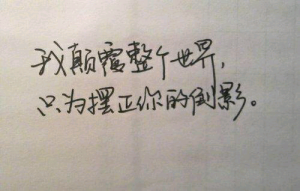 我颠覆整个世界，
只为摆正你的倒影。